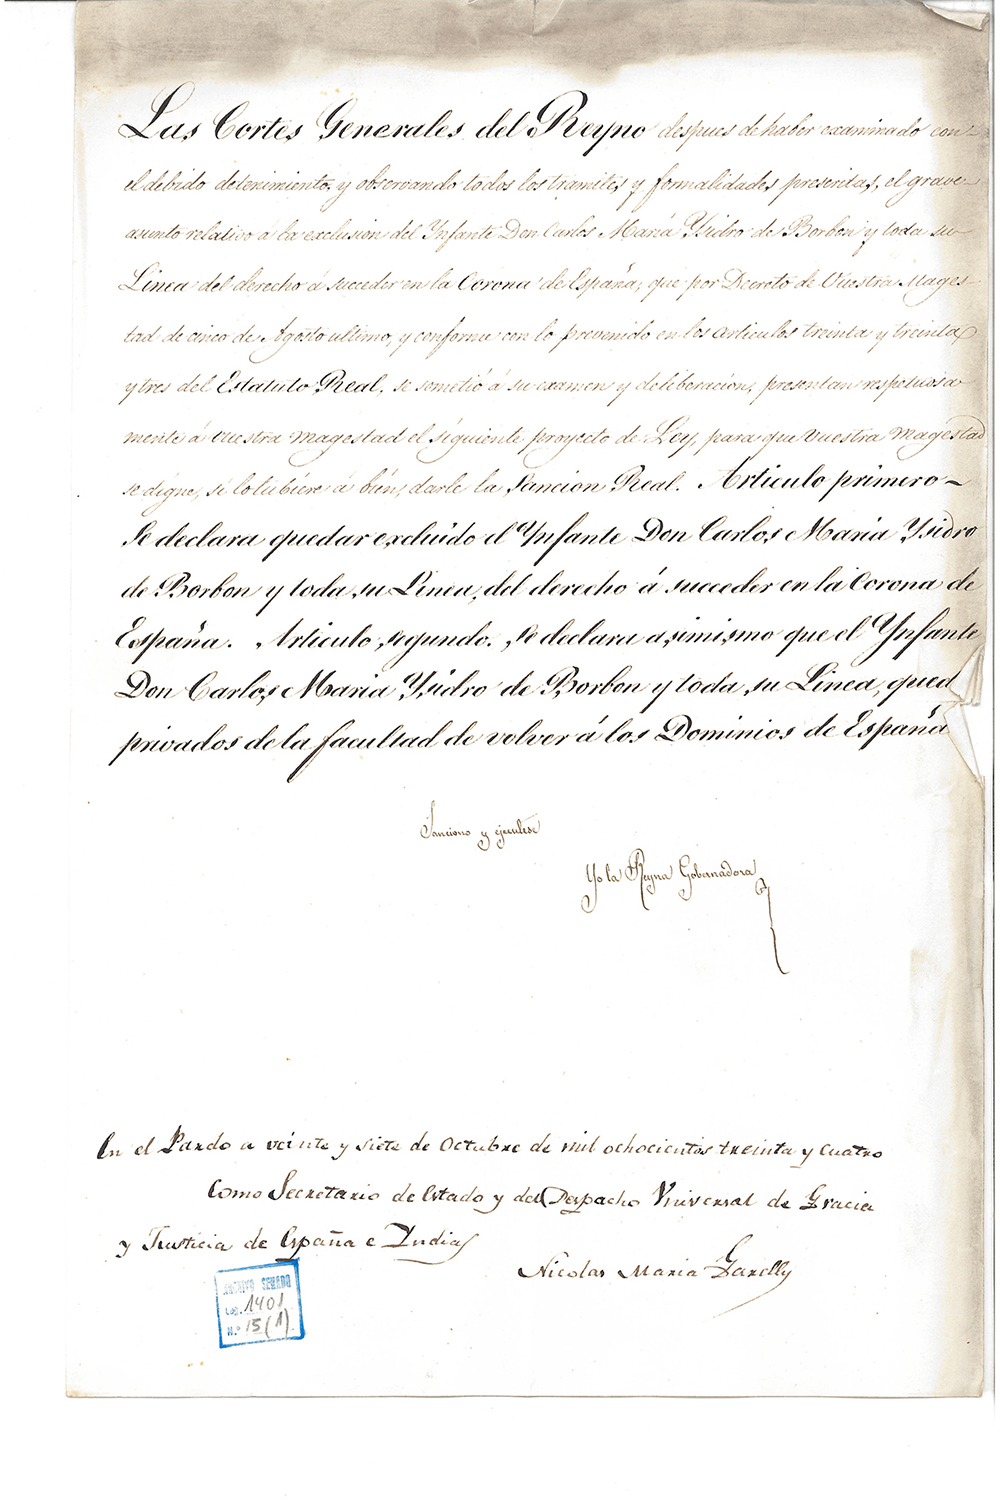 Las Cortes Generales del Reyno despues de haber examinado con
el debido detenimiento, y observando todos los tramites y formalidades prescritas, el grave
asunto relativo á la exclusion del Ynfante Don Carlos María Ysidro de Borbon y toda su
Linea del derecho á succeder en la Corona de España, que por Decreto de Vuestra Mages-
tad de cinco de Agosto ultimo, y conforme con lo prevenido en los articulos treinta y treinta
y tres del Estatuto Real, se sometió á su examen y deliberacion, presentan respetuosa
mente á vuestra magestad el siguiente proyecto de Ley, para que vuestra magestad
se digne, si lo tubiere á bien, darle la Sancion Real. Articulo primero
Se declara quedar excluido el Ynfante Don Carlos Maria Ysidro
de Borbon y toda su Linea, del derecho á succeder en la Corona de
España. Articulo segundo. Se declara asimismo que el Ynfante
Don Carlos Maria Ysidro de Borbon y toda su Linea, qued
privados de la facultad de volver á los Dominios de España
Sanciono y ejecutese
Yo la Reyna Gobernadora
En el Pardo a veinte y siete de Octubre de mil ochocientos treinta y cuatro
Como Secretario de Estado y del Despacho Universal de Gracia
y Justicia de España e Yndias
Nicolas Maria Garelly
ARCHIVO SENADO
Leg. 1401
N.º 15 (1)